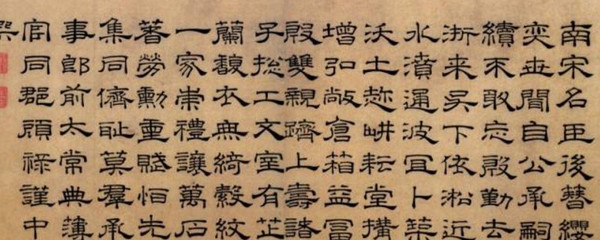 南宋名臣後簪纓
奕世間自公承嗣
續不敢忘殷勤去
浙来吴下依淞近
水濆通波宜卜築
沃土趂畊耘堂搆
增弘敞倉箱益冨
殷雙親躋上壽諸
子捴工文室有芷
蘭馥衣無綺縠紋
一家崇禮讓萬石
著勞勳重賦恒先
集同儕耻莫羣承
事郎前太常典簿
官同郡顧祿謹中